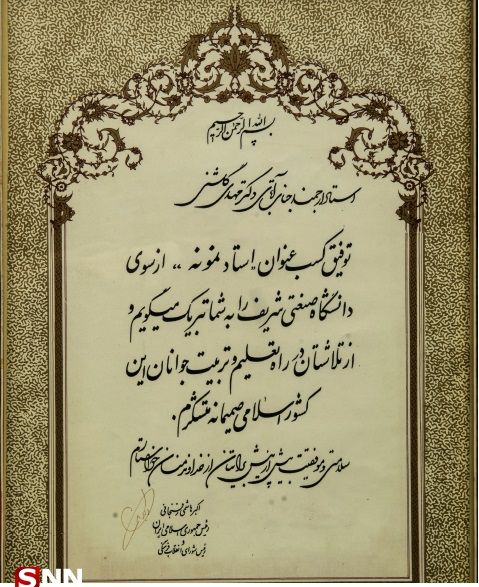 بسم الله الرحمن الرحیم
استاد ارجمند جناب آقای دکتر مهدی گلشنی
توفیق کسب عنوان "استاد نمونه" از سوی
دانشگاه صنعتی شریف را به شما تبریک میگویم و
از تلاشتان در راه تعلیم و تربیت جوانان این
کشور اسلامی صمیمانه متشکرم.
سلامتی و موفقیت بیش از پیش برایتان از خداوند منان خواستارم
اکبر هاشمی رفسنجانی
رئیس جمهوری اسلامی ایران
و رئیس شورای انقلاب فرهنگی
SNN